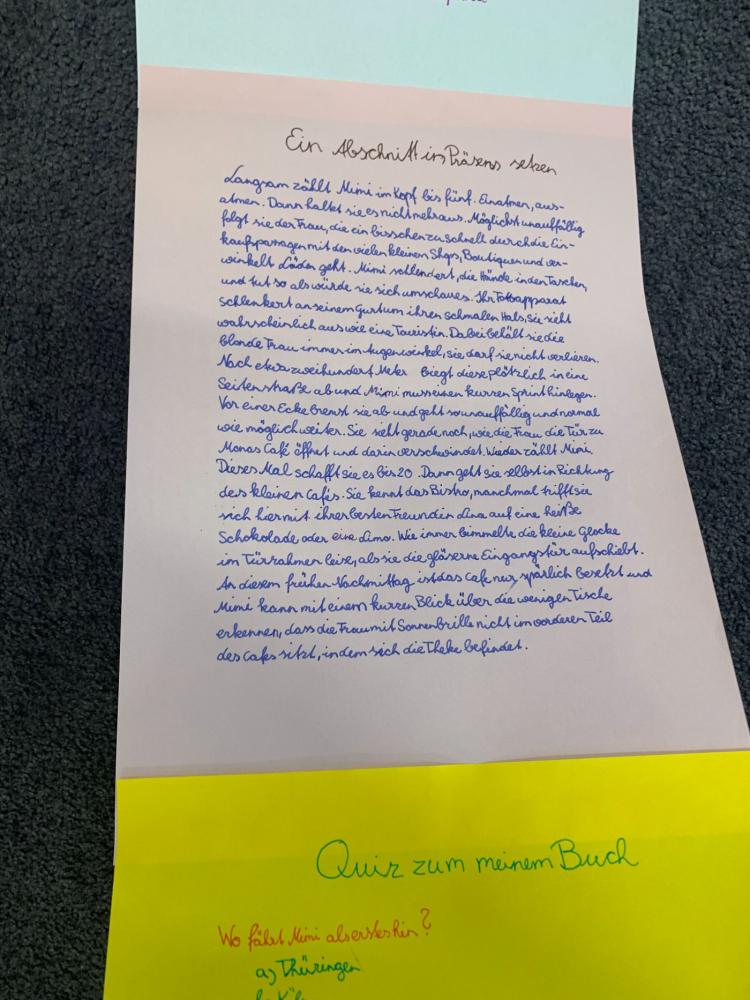 Ein Abschnitt ins Präsens setzen
Langsam zählt Mimi im Kopf bis fünf. Einatmen, aus-
atmen. Dann haltet sie es nicht mehr aus. Möglichst unauffällig
folgt sie der Frau, die ein bisschen zu schnell durch die Ein-
kaufspassagen mit den vielen kleinen Shops, Boutiquen und ver-
winkelt Läden geht. Mimi schlendert, die Hände in den Taschen,
und tut so als würde sie sich umschauen. Ihr Fotoapparat
schlenkert an seinem Gurt um ihren schmalen Hals, sie sieht
wahrscheinlich aus wie eine Touristin. Dabei behält sie die
blonde Frau immer im Augenwinkel, sie darf sie nicht verlieren.
Nach etwa zweihundert Meter biegt diese plötzlich in eine
Seitenstraße ab und Mimi muss einen kurzen Sprint hinlegen.
Vor einer Ecke bremst sie ab und geht so unauffällig und normal
wie möglich weiter. Sie sieht gerade noch, wie die Frau die Tür zu
Monas Café öffnet und darin verschwindet. Wieder zählt Mimi.
Dieses Mal schafft sie es bis 20. Dann geht sie selbst in Richtung
des kleinen Cafés. Sie kennt das Bistro, manchmal trifft sie
sich hier mit ihrer besten Freundin Lina auf eine heiße
Schokolade oder eine Limo. Wie immer bimmelte die kleine Glocke
im Türrahmen leise, als sie die gläserne Eingangstür aufschiebt.
An diesem frühen Nachmittag ist das Cafe nur spärlich besetzt und
Mimi kann mit einem kurzen Blick über die wenigen Tische
erkennen, dass die Frau mit Sonnenbrille nicht im vorderen Teil
des Cafes sitzt, indem sich die Theke befindet.
Quiz zum meinem Buch
Wo fährt Mimi als erstes hin?
a) Thüringen